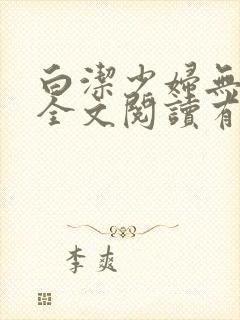 白潔少婦無
全文閱讀有
李爽